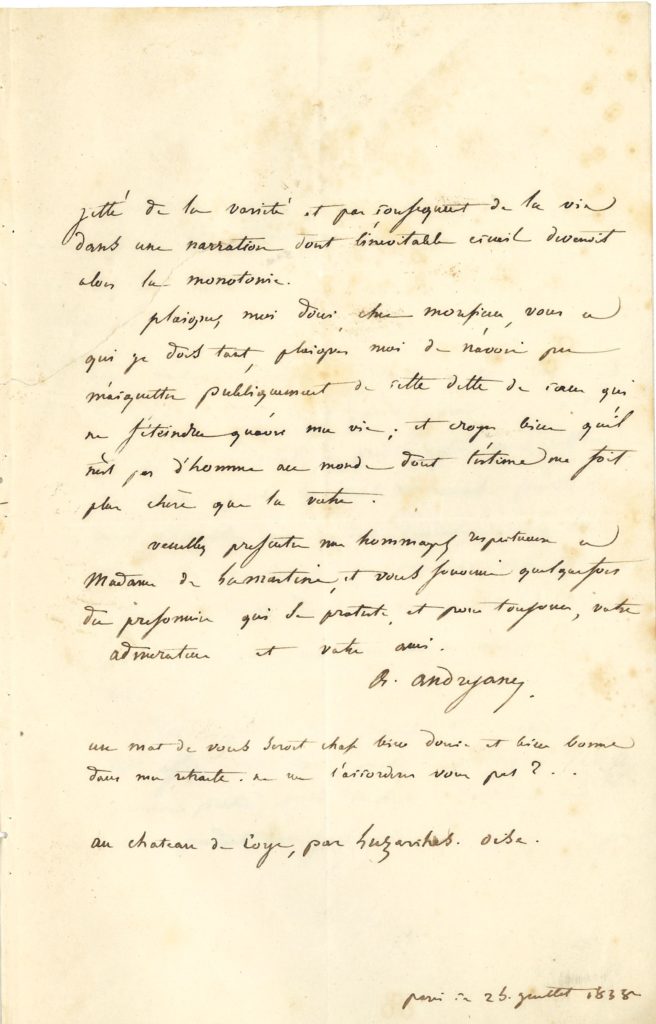 jetté de la varieté et par consequent de la vie
dans une narration dont l'inevitable écueil devenoit
alors la monotonie.
plaignez moi donc, cher monsieur, vous a
qui je dois tant, plaignez moi de n'avoir pu
m'aiquitter publiquement de cette dette de cœur qui
ne s'éteindra qu'avec ma vie; et croyez bien qu'il
n'est pas d'homme au monde dont l'estime me soit
plus chère que la votre.
veuillez presenter mes hommages respectueux a
Madame de Lamartine, et vous souvenir quelquefois
du prisonnier qui se proteste, et pour toujours, votre
admirateur et votre ami.
A. andryane,
un mot de vous seroit chose bien douce et bien bonne
dans ma retraite. ne me l'accorderez vous pas? . .
au chateau de Coye, par Luzarches. oise.
paris ce 25. juillet 1838